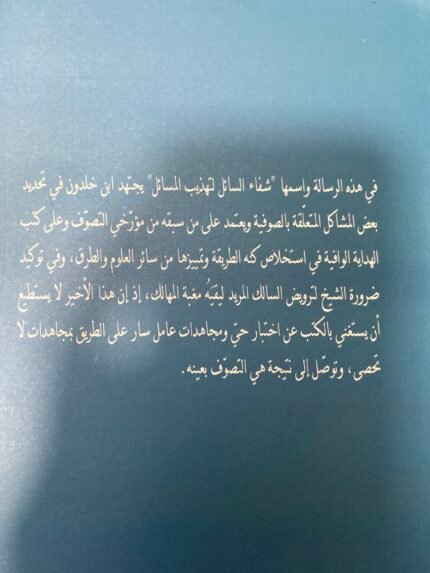 في هذه الرسالة واسمها "شفاء السائل لتهذيب المسائل" يجتهد ابن خلدون في تحديد
بعض المشاكل المتعلّقة بالصوفية ويعتمد على من سبقه من مؤرّخي التصوّف وعلى كتب
الهداية الوافية في استخلاص كنه الطريقة وتمييزها من سائر العلوم والطرق، وفي توكيد
ضرورة الشيخ لترويض السالك المريد ليقيَهُ مغبة المهالك، إذ إن هذا الأخير لا يستطيع
أن يستغني بالكتب عن اختبار حيّ ومجاهدات عامل سار على الطريق بمجاهدات لا
تحصى، وتوصّل إلى نتيجة هي التصوّف بعينه.